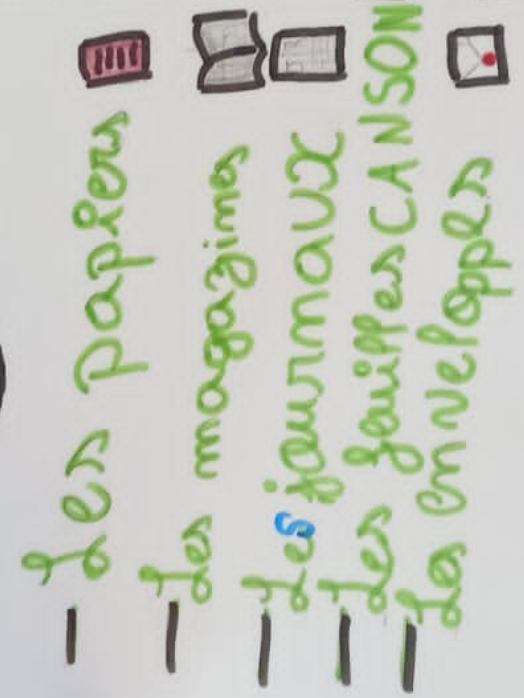 - Les papiers
- Les magazines
- Les journaux
- Les feuilles CANSON
- Les enveloppes